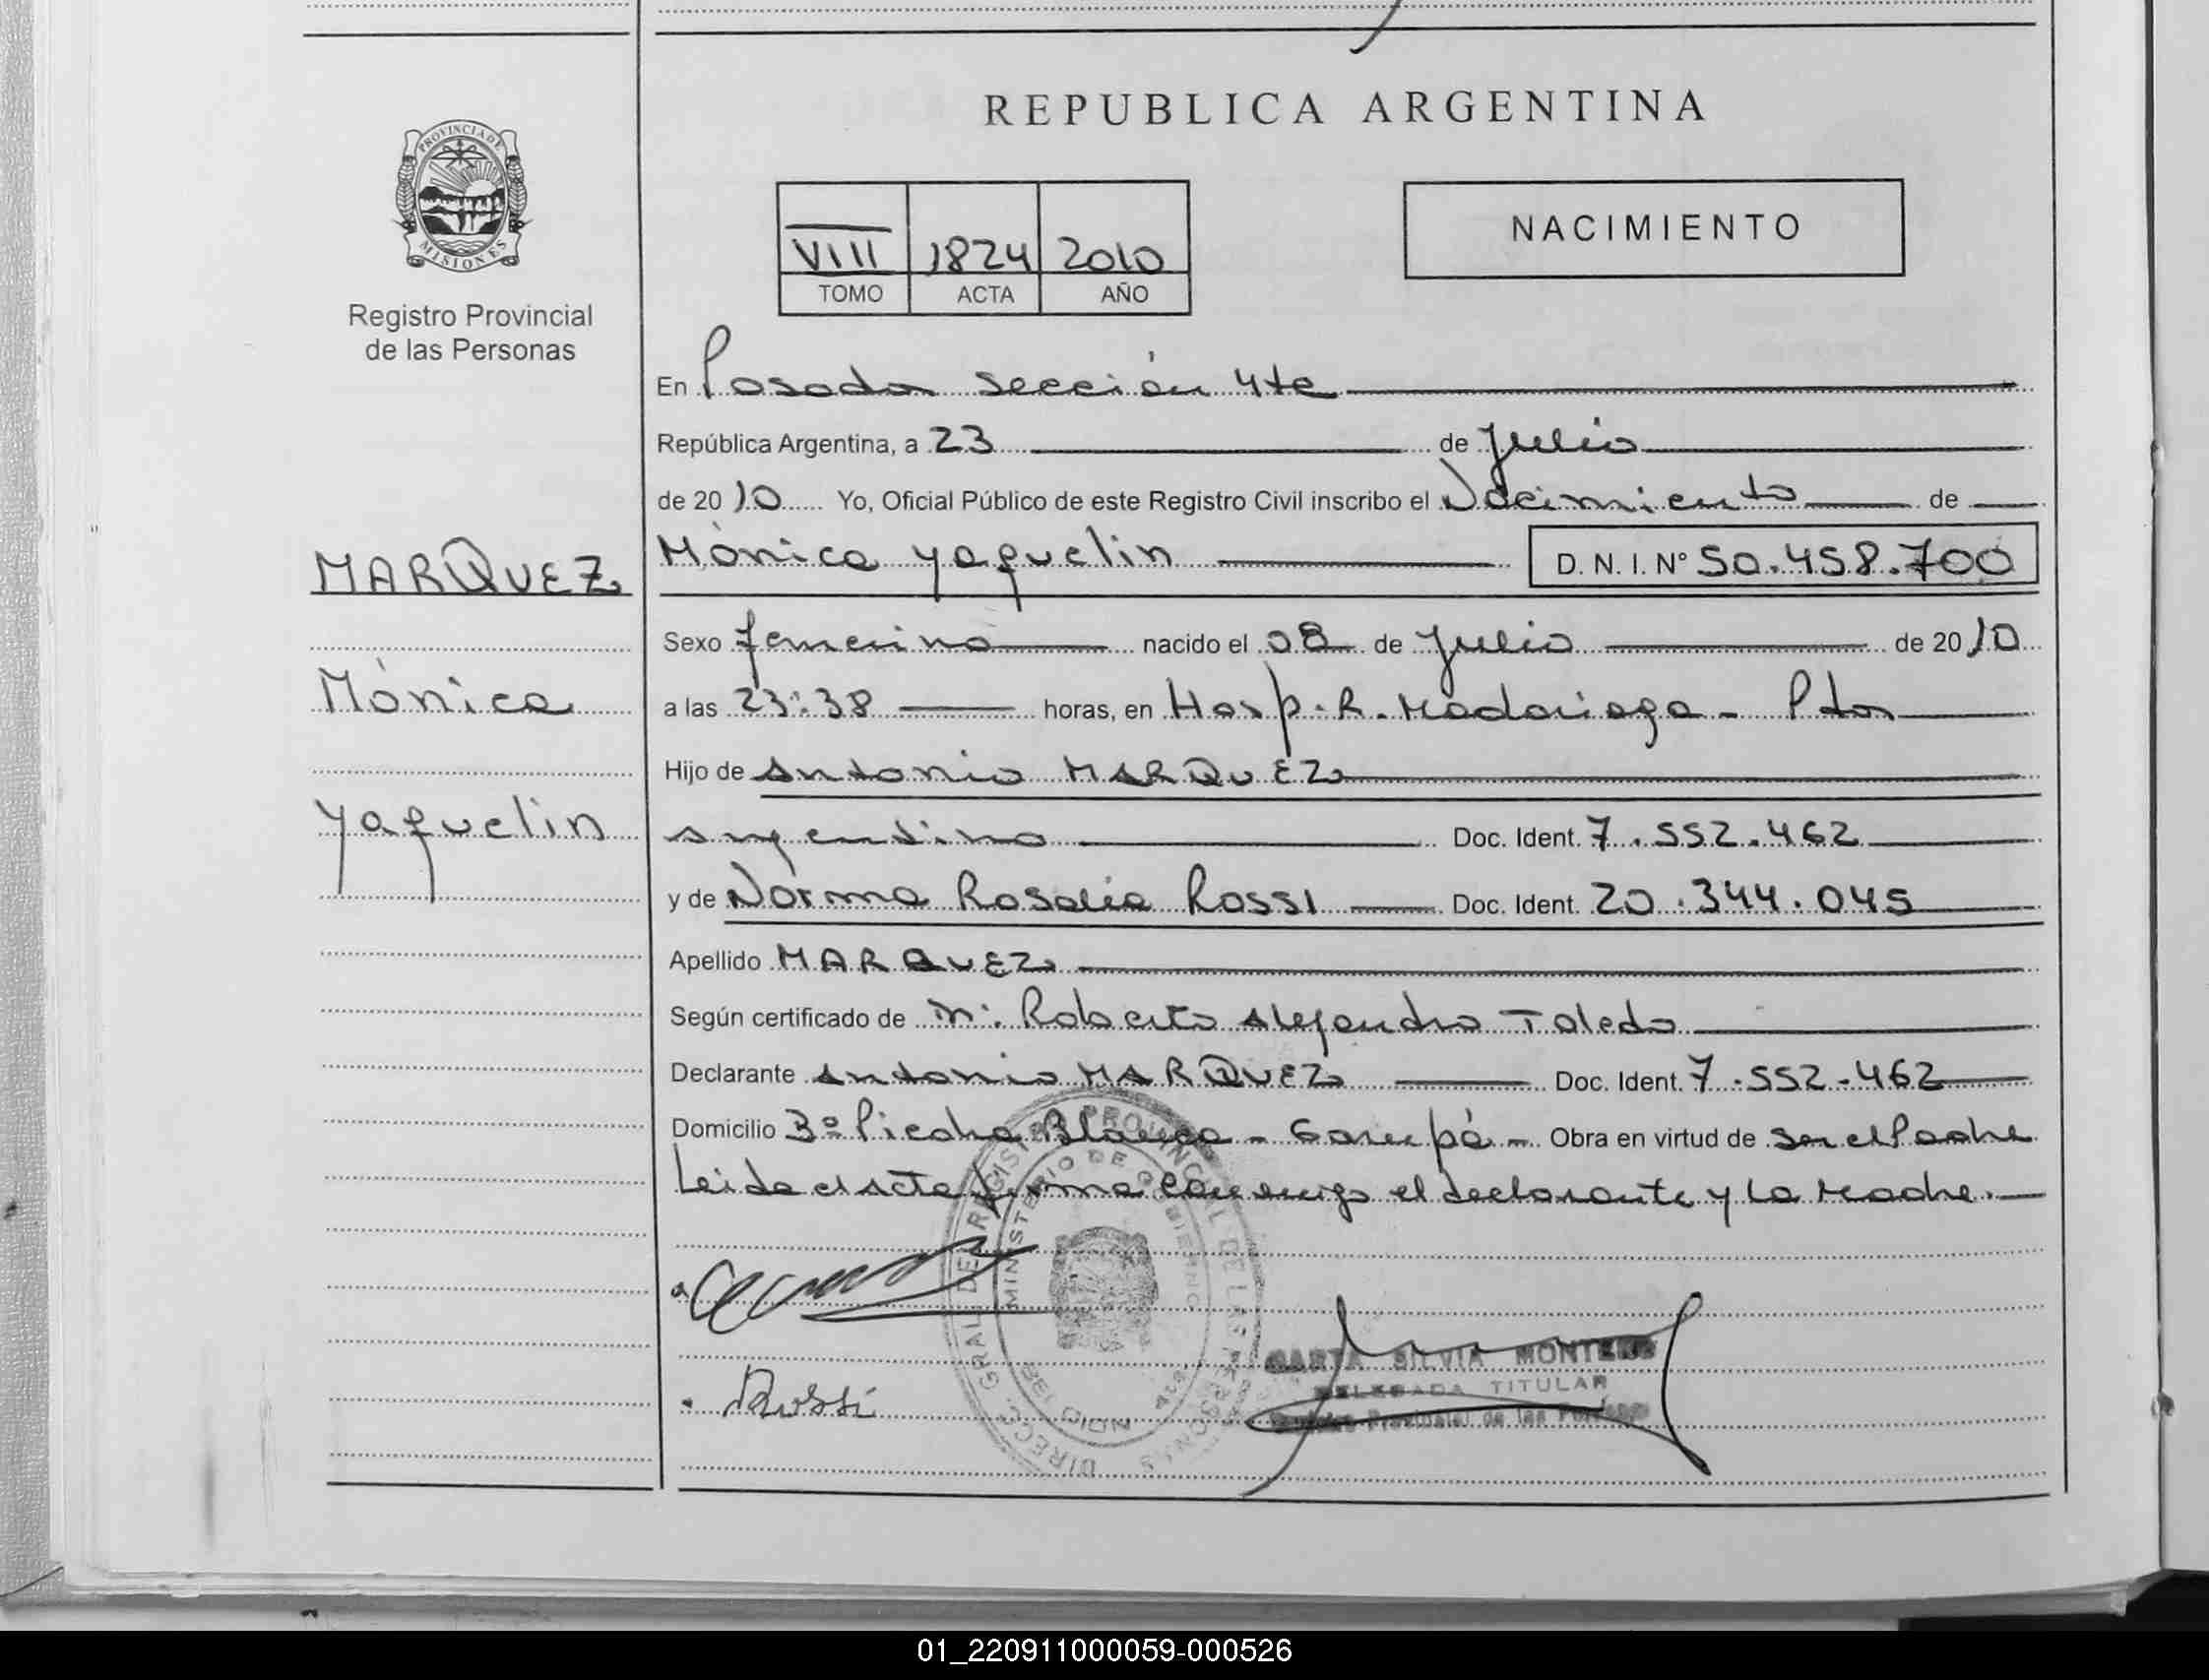 REPUBLICA ARGENTINA
PROVINCIA DE
MISIONES
Registro Provincial
de las Personas
VIII 1824 2010
TOMO ACTA AÑO
NACIMIENTO
En Posadas sección 4ta
República Argentina, a 23 de Julio
de 2010 Yo, Oficial Público de este Registro Civil inscribo el Nacimiento de
MARQUEZ
Mónica Yaquelin D. N. I. N° 50.458.700
Sexo femenino nacido el 08 de Julio de 2010
Mónica
a las 23:38 horas, en Hosp. R. Madariaga - Pdas
Hijo de Antonio MARQUEZ
Yaquelin
argentino Doc. Ident. 7.552.462
y de Norma Rosalia ROSSI Doc. Ident. 20.344.045
Apellido MARQUEZ
Según certificado de Roberto Alejandro Toledo
Declarante Antonio MARQUEZ Doc. Ident. 7.552.462
Domicilio Bº Piedra Blanca - Garupá - Obra en virtud de ser el Padre
Leida el acta firma conmigo el declarante y la Madre.
DIRECC. GRAL. DEL REGISTRO PROVINCIAL DE LAS PERSONAS
MINISTERIO DE GOBIERNO
Rossi
SILVIA MONTERO
DELEGADA TITULAR
Provincial de las Personas
01_220911000059-000526